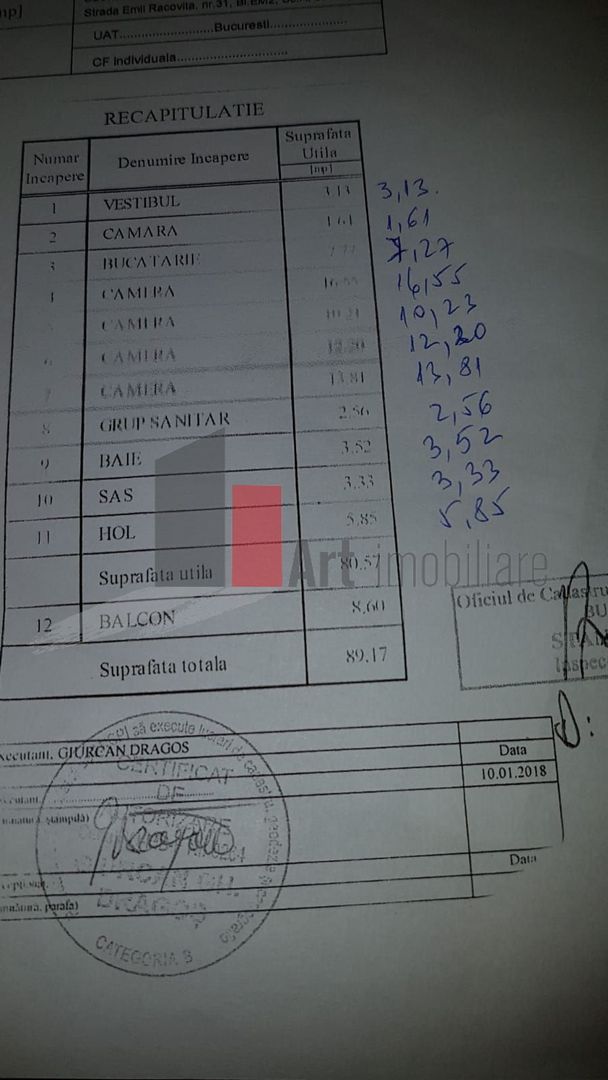 mp]
Strada Emil Racovita, nr.31, Bl.EM2,
UAT........................Bucuresti......................
CF individuala................................
RECAPITULATIE
Numar Incapere Denumire Incapere Suprafata Utila [mp]
1 VESTIBUL 3.13 3,13.
2 CAMARA 1.61 1,61
3 BUCATARIE 7,27
4 CAMERA 16,55
CAMERA 10,23
6 CAMERA 12.20 12,20
7 CAMERA 13.81 13,81
8 GRUP SANITAR 2.56 2,56
9 BAIE 3.52 3,52
10 SAS 3.33 3,33
11 HOL 5.85 5,85
Suprafata utila 80.57
Art imobiliare
12 BALCON 8.60
Suprafata totala 89.17
Oficiul de Cadastru
BU
Inspec
Executant, GIURCAN DRAGOS
Data
10.01.2018
stampila)
Data
parafa)
să execute lucrari de cadastru
CERTIFICAT
DE
AUTORIZARE
GIURCAN GH.
DRAGOS
CATEGORIA B